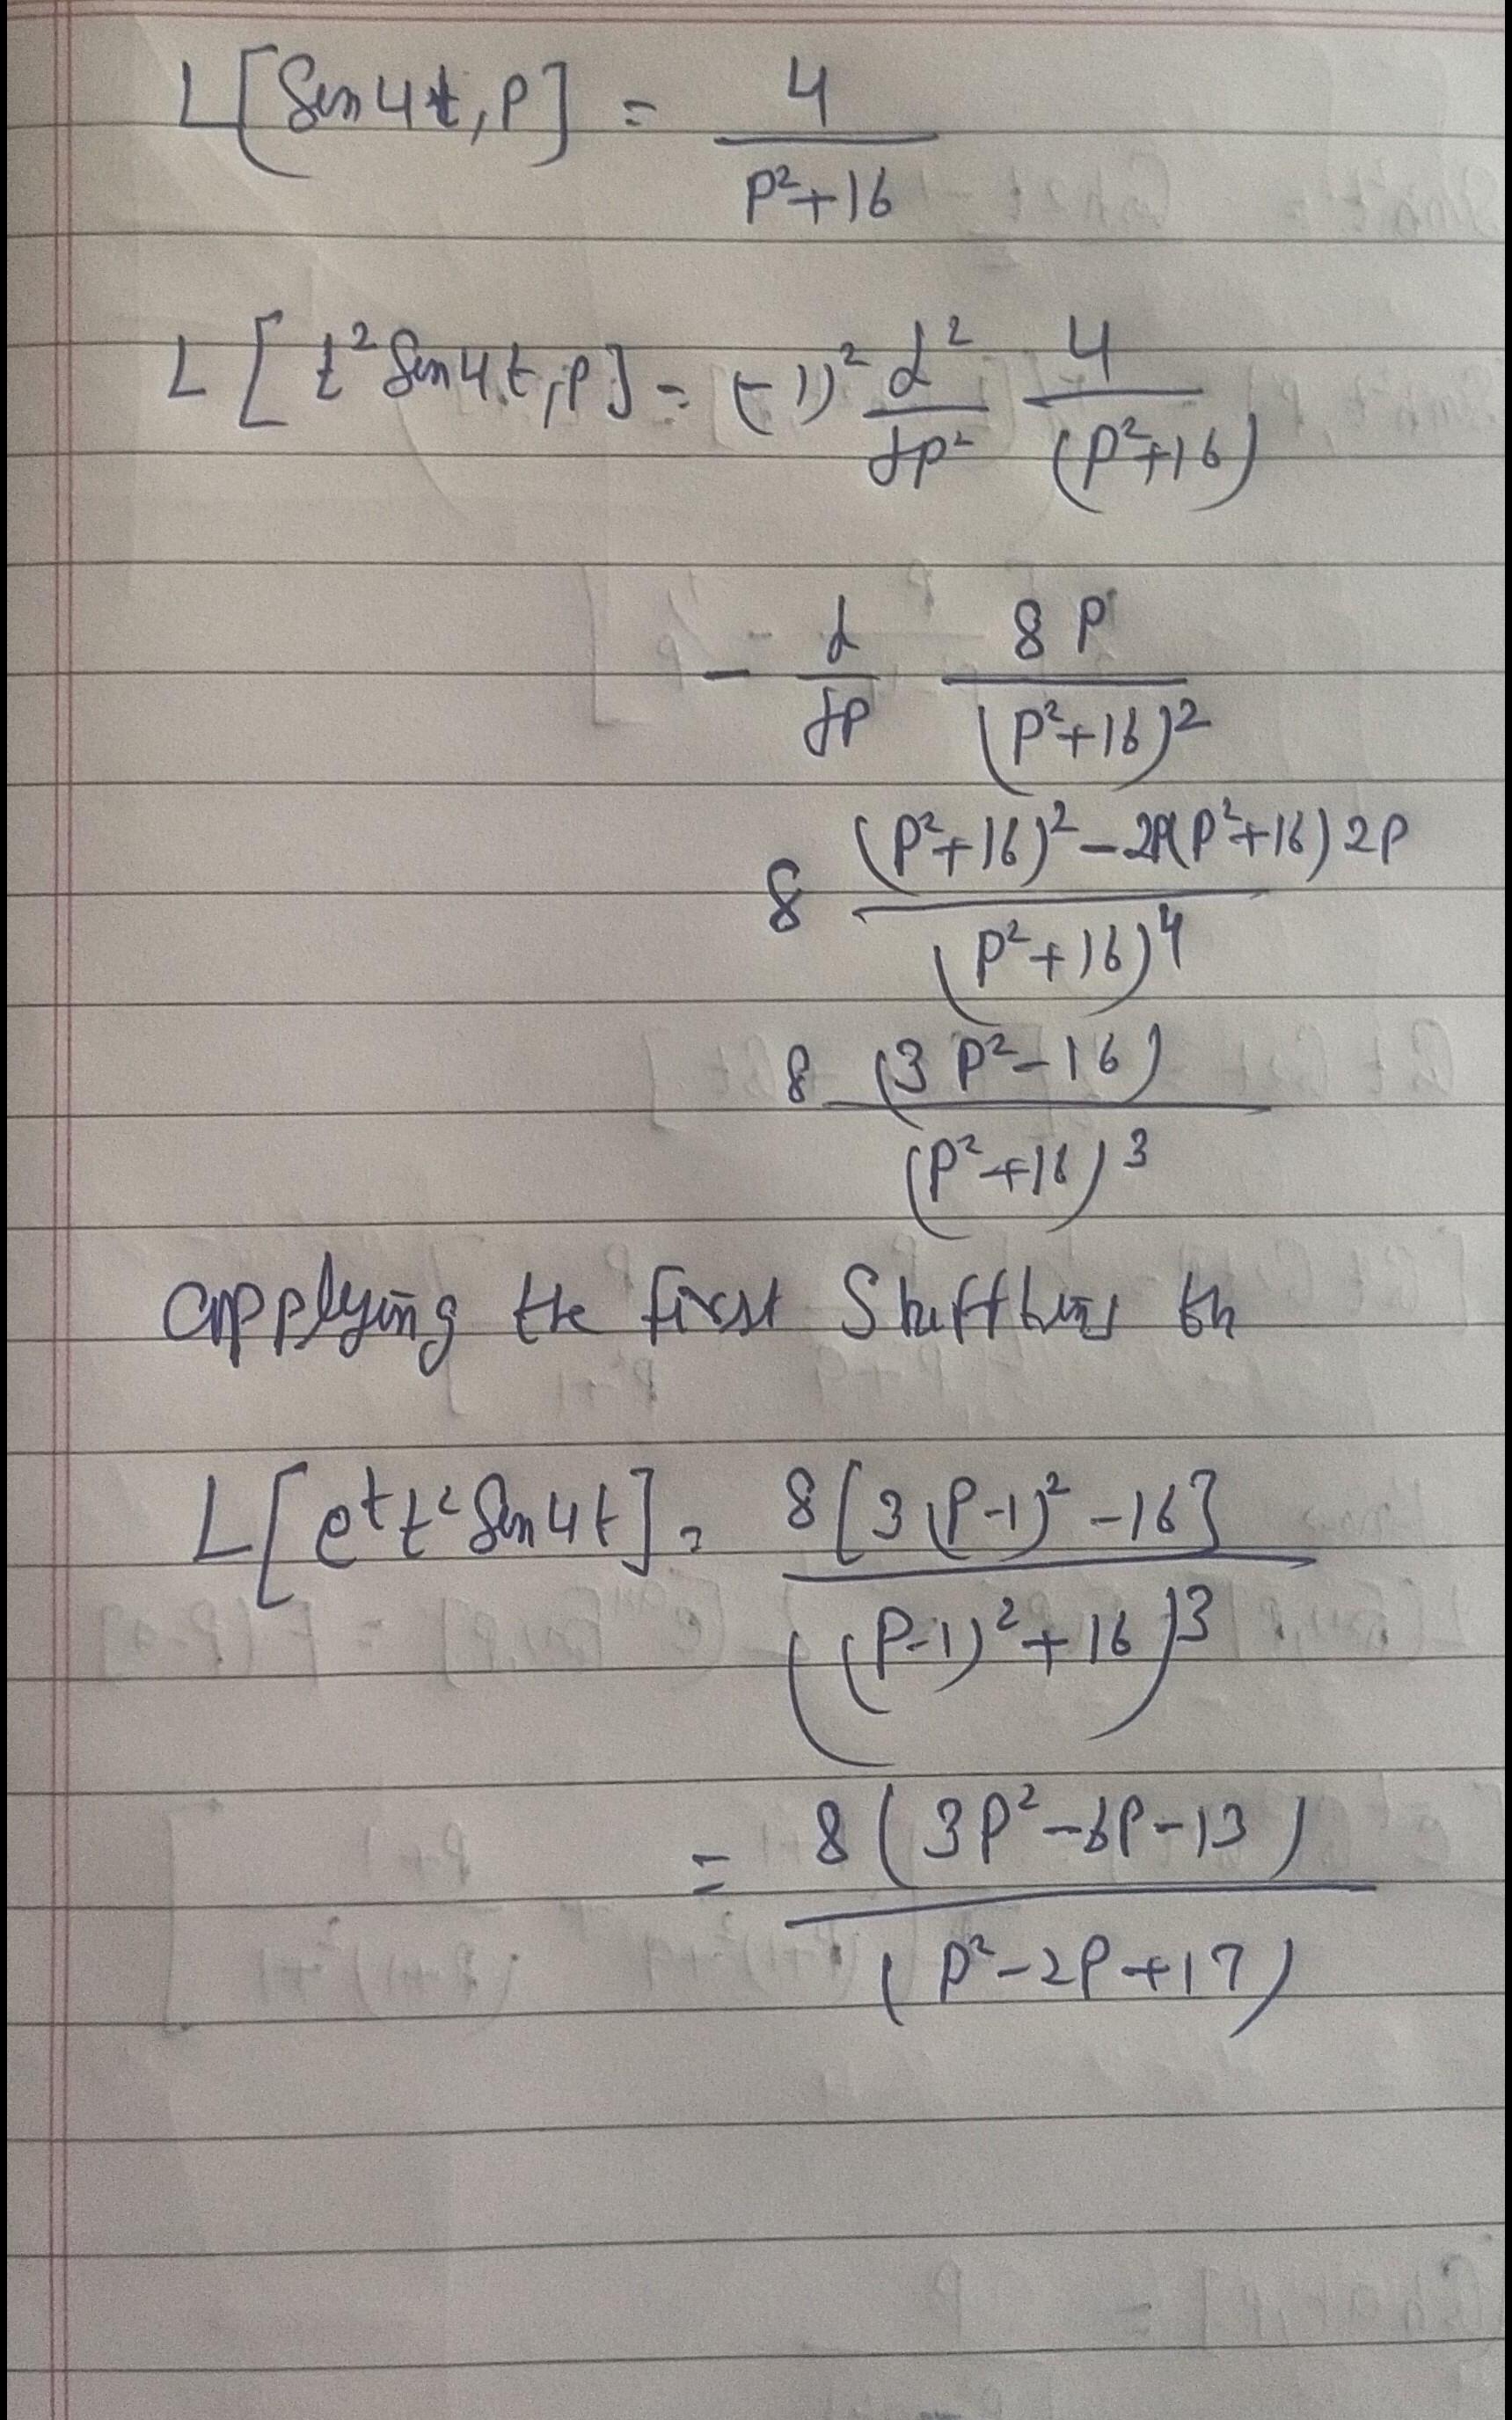 L[Sin4t,P] = 4/(P²+16)
L[t²Sin4t,P] = (-1)² d²/dP² 4/(P²+16)
- d/dP 8P/(P²+16)²
8 ((P²+16)²-2P(P²+16)2P)/(P²+16)⁴
8 (3P²-16)/(P²+16)³
applying the first Shifting th
L[eᵗt²Sin4t] = 8[3(P-1)²-16]/((P-1)²+16)³
= 8(3P²-6P-13)/(P²-2P+17)